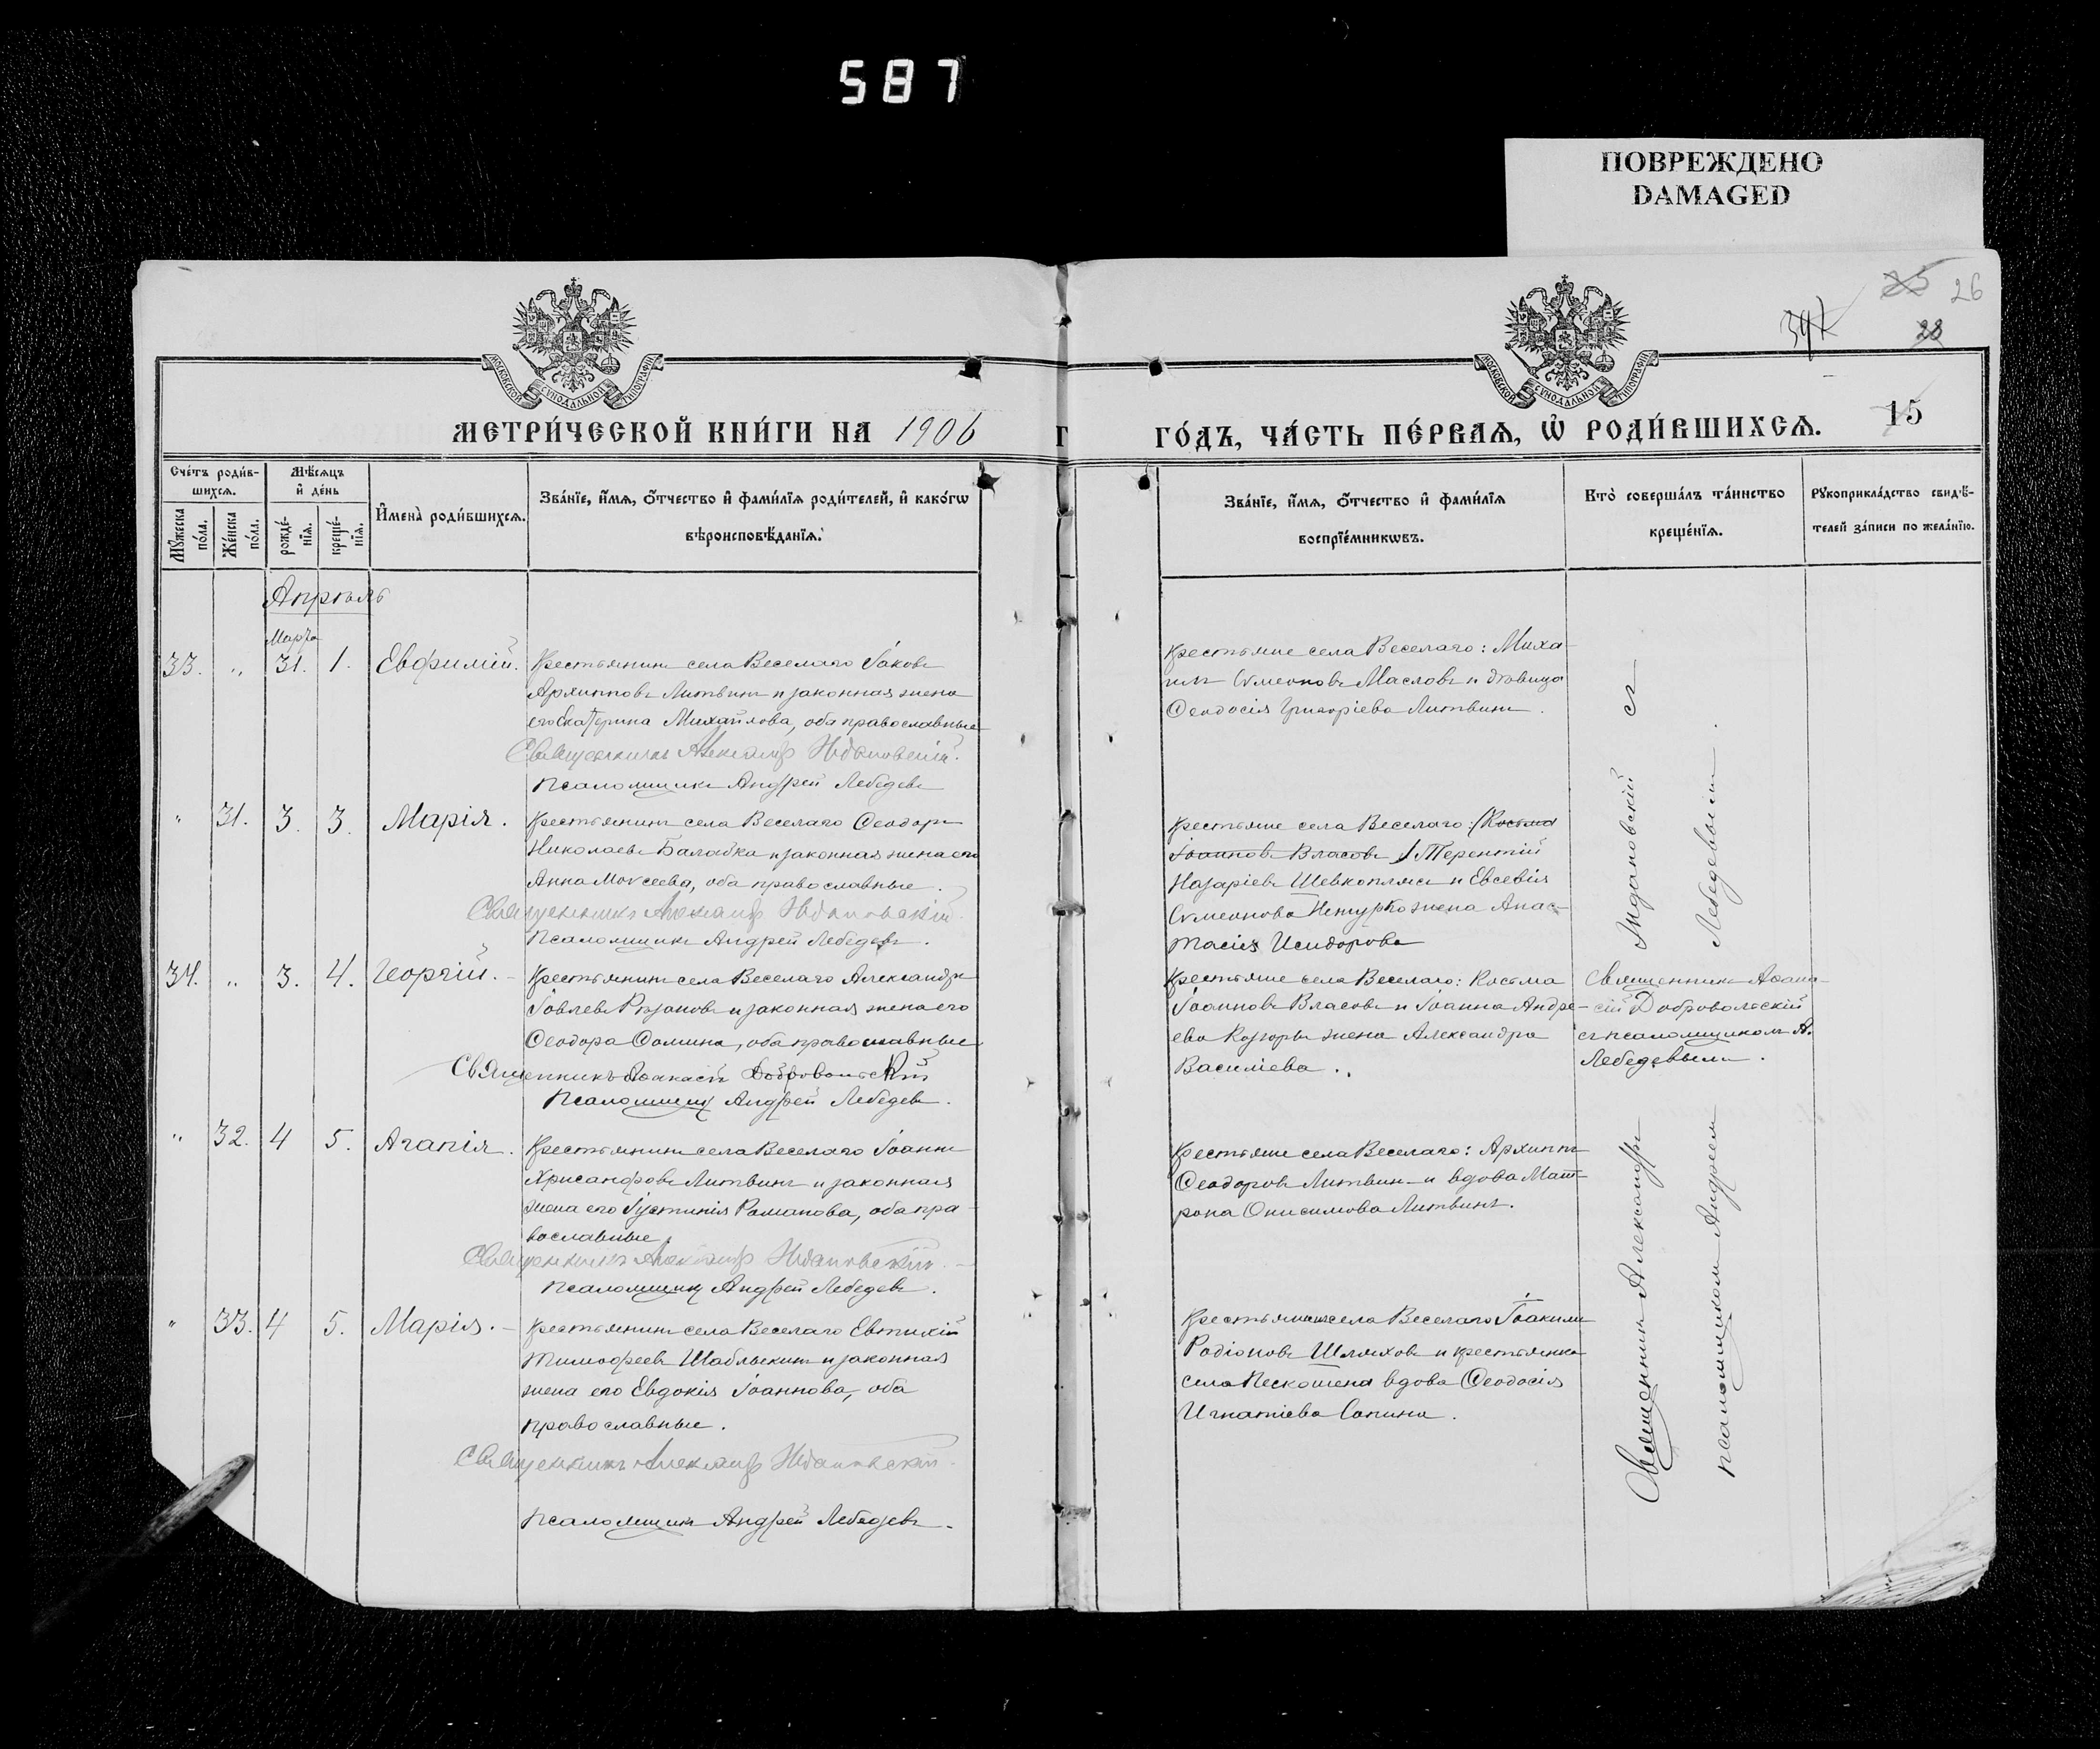 587
ПОВРЕЖДЕНО
DAMAGED
25 26
28
МОСКОВСКОЙ СУНОДАЛЬНОЙ ТИПОГРАФІИ
МОСКОВСКОЙ СУНОДАЛЬНОЙ ТИПОГРАФІИ
МЕТРИ́ЧЕСКОЙ КНИ́ГИ НА 1906
ГО́ДЪ, ЧА́СТЬ ПЕ́РВАѦ, Ѡ҆ РОДИ́ВШИХСѦ.
15
Сче́тъ роди́в-
шихсѧ.
Мѣ́сѧцъ
и҆ де́нь
Мꙋ́жеска
по́ла.
Же́нска
по́ла.
рожде́-
нїѧ.
креще́-
нїѧ.
И҆мена̀ роди́вшихсѧ.
Зва́нїе, и҆́мѧ, ѻ҆́тчество и҆ фами́лїѧ роди́телей, и҆ како́гѡ
вѣроисповѣ́данїѧ.
Зва́нїе, и҆́мѧ, ѻ҆́тчество и҆ фами́лїѧ
воспрїе́мникѡвъ.
Кто̀ соверша́лъ та́инство
креще́нїѧ.
Рꙋкоприкла́дство свидѣ́-
телей за́писи по жела́нїю.
Апрѣль
Марта
33. „ 31. 1. Евфимій. Крестьянинъ села Веселаго Іаковъ
Архипповъ Литвинъ и законная жена
его Екатерина Михайлова, оба православные
Священникъ Александр Ждановский.
Псаломщикъ Андрей Лебедевъ
Крестьяне села Веселаго: Миха-
илъ Сѵмеоновъ Масловъ и дѣвица
Ѳеодосія Григоріева Литвинъ.
„ 31. 3. 3. Марія. Крестьянинъ села Веселаго Ѳеодоръ
Николаевъ Балабка и законная жена его
Анна Моѵсеева, оба православные.
Священникъ Александр Ждановскій.
Псаломщикъ Андрей Лебедевъ.
Крестьяне села Веселаго: (Косьма
Іоанновъ Власовъ) Терентій
Назаріевъ Шевкоплясъ и Евсевія
Сѵмеонова жена Анас-
тасія Исидорова
34. „ 3. 4. Георгій. Крестьянинъ села Веселаго Александръ
Іовлевъ Рѣзановъ и законная жена его
Ѳеодора Ѳомина, оба православные
Священникъ Аѳанасій Добровольскій
Псаломщикъ Андрей Лебедевъ.
Крестьяне села Веселаго: Косьма
Іоанновъ Власовъ и Іоанна Андре-
ева жена Александра
Василіева.
Священникъ Аѳана-
сій Добровольскій
съ псаломщикомъ А.
Лебедевымъ.
„ 32. 4 5. Агапія. Крестьянинъ села Веселаго Іоаннъ
Хрисанфовъ Литвинъ и законная
жена его Іустинія Романова, оба пра-
вославные.
Священникъ Александр Ждановскій.
Псаломщикъ Андрей Лебедевъ.
Крестьяне села Веселаго: Архиппъ
Ѳеодоровъ Литвинъ и вдова Мат-
рона Онисимова Литвинъ.
„ 33. 4 5. Марія. Крестьянинъ села Веселаго Евтихій
Тимоѳеевъ Шаблыкинъ и законная
жена его Евдокія Іоаннова, оба
православные.
Священникъ Александр Ждановскій.
Псаломщикъ Андрей Лебедевъ.
Крестьянинъ села Веселаго Іоакимъ
Родіоновъ Шляховъ и крестьянка
села вдова Ѳеодосія
Игнатіева Сапина.
Священникъ Александръ Ждановскій съ
псаломщикомъ Андреемъ Лебедевымъ.